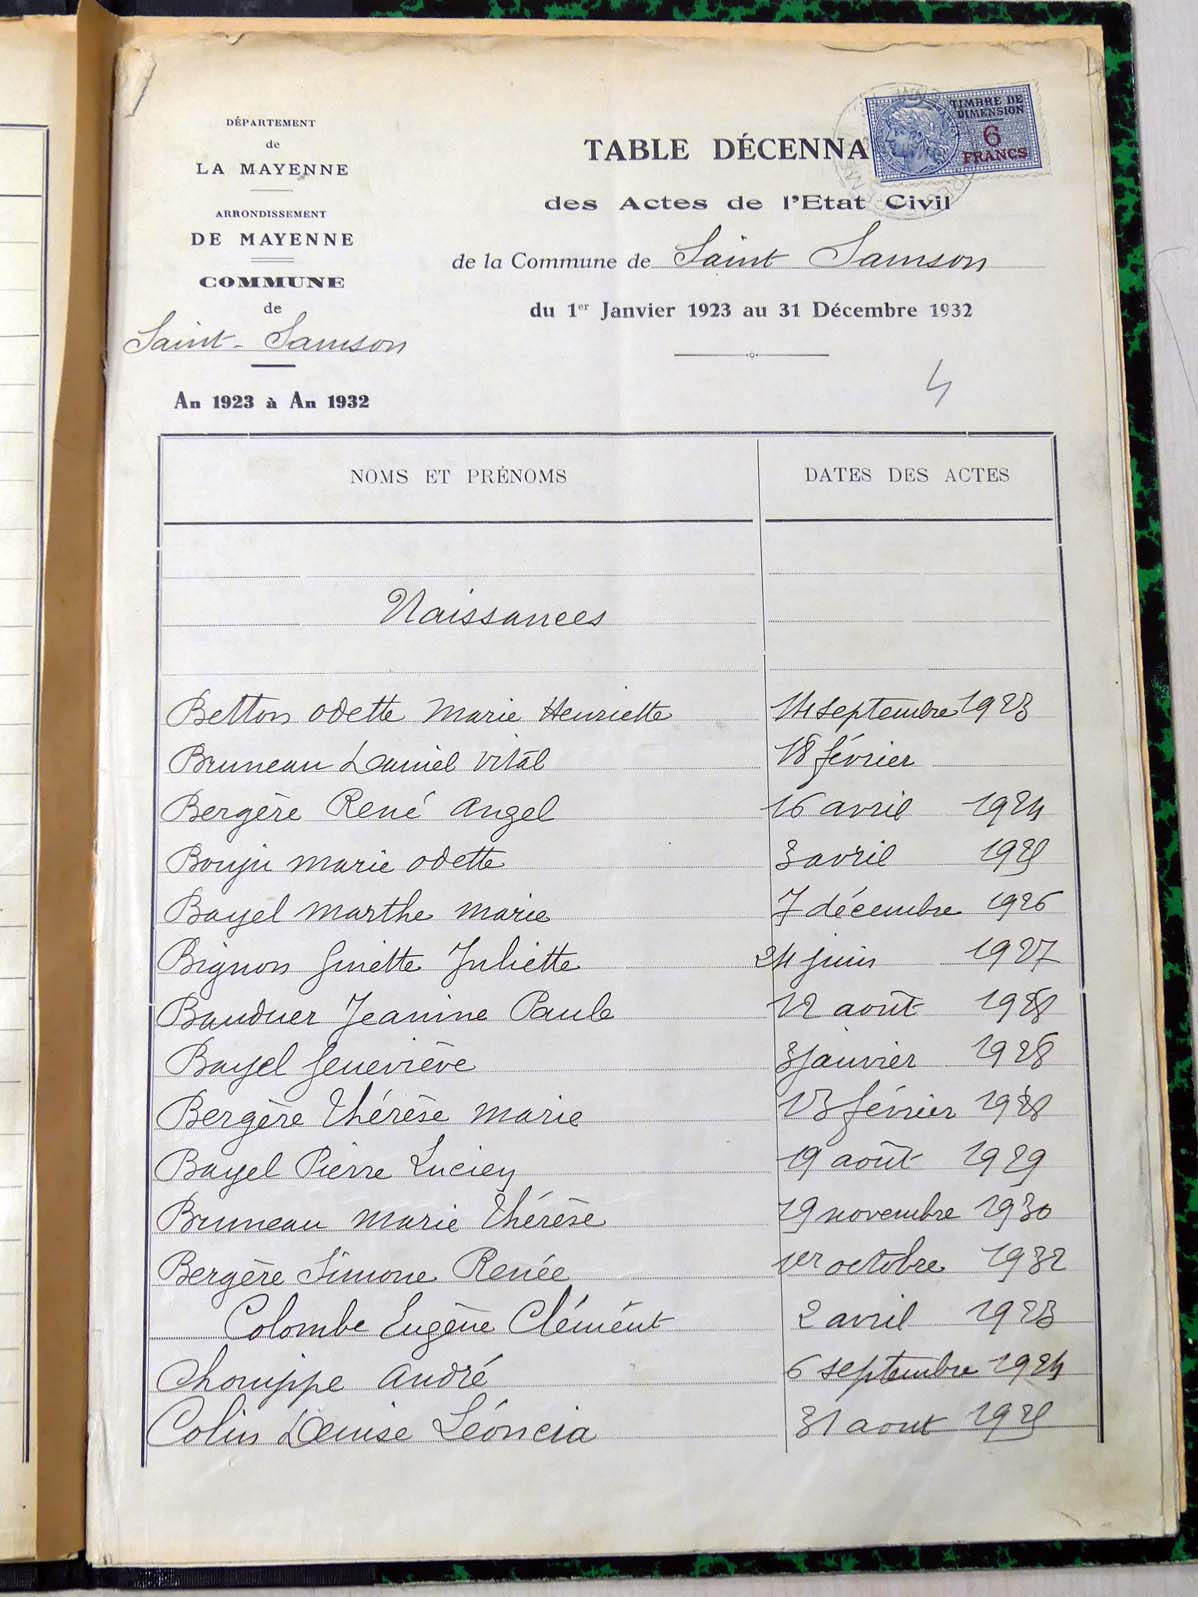 DÉPARTEMENT
de
LA MAYENNE
ARRONDISSEMENT
DE MAYENNE
COMMUNE
de
Saint-Samson
An 1923 à An 1932
TIMBRE DE
DIMENSION
6
FRANCS
TABLE DÉCENNA
des Actes de l'Etat Civil
de la Commune de Saint Samson
du 1er Janvier 1923 au 31 Décembre 1932
4
NOMS ET PRÉNOMS DATES DES ACTES
Naissances
Betton Odette Marie Henriette 14 septembre 1923
Bruneau Daniel Vital 18 février
Bergère René Angel 16 avril 1924
Bouju Marie Odette 3 avril 1925
Bayel Marthe Marie 7 décembre 1926
Bignon Ginette Juliette 24 juin 1927
Bauduer Jeanine Paule 12 août 1928
Bayel Geneviève 3 janvier 1928
Bergère Thérèse Marie 13 février 1928
Bayel Pierre Lucien 19 août 1929
Bruneau Marie Thérèse 19 novembre 1930
Bergère Simone Renée 1er octobre 1932
Colombe Eugène Clément 2 avril 1923
Chouippe André 6 septembre 1924
Colin Denise Léoncia 31 aout 1925